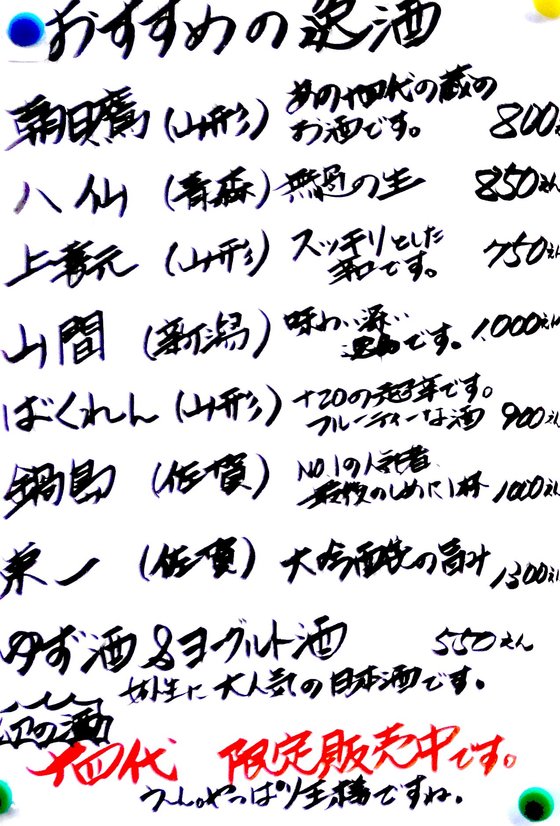 おすすめの逸酒
朝日鷹(山形) あの十四代の蔵の
お酒です。 800
八仙 (青森) 無濾過の生 850えん
上喜元 (山形) スッキリとした
酒です。 750えん
山間 (新潟) 味わい深い
酒です。 1000えん
ばくれん (山形) +20の超辛です。
フルーティーな酒 900えん
鍋島 (佐賀) NO.1の人気者
最後のしめに1杯 1000えん
東一 (佐賀) 大吟醸の旨み 1300えん
ゆず酒&ヨーグルト酒 550えん
女性に大人気の日本酒です。
幻の酒
十四代 限定販売中です。
う〜ん。やっぱり王様ですね。